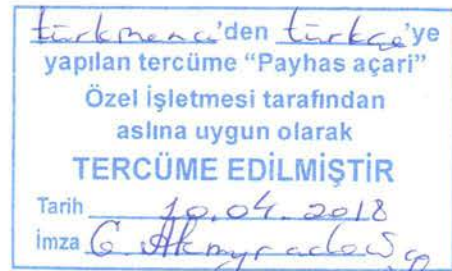 türkmence'den türkçe'ye
yapılan tercüme “Payhas açari”
Özel işletmesi tarafından
aslına uygun olarak
TERCÜME EDİLMİŞTİR
Tarih 10.04.2018
İmza G. Akmyradowa